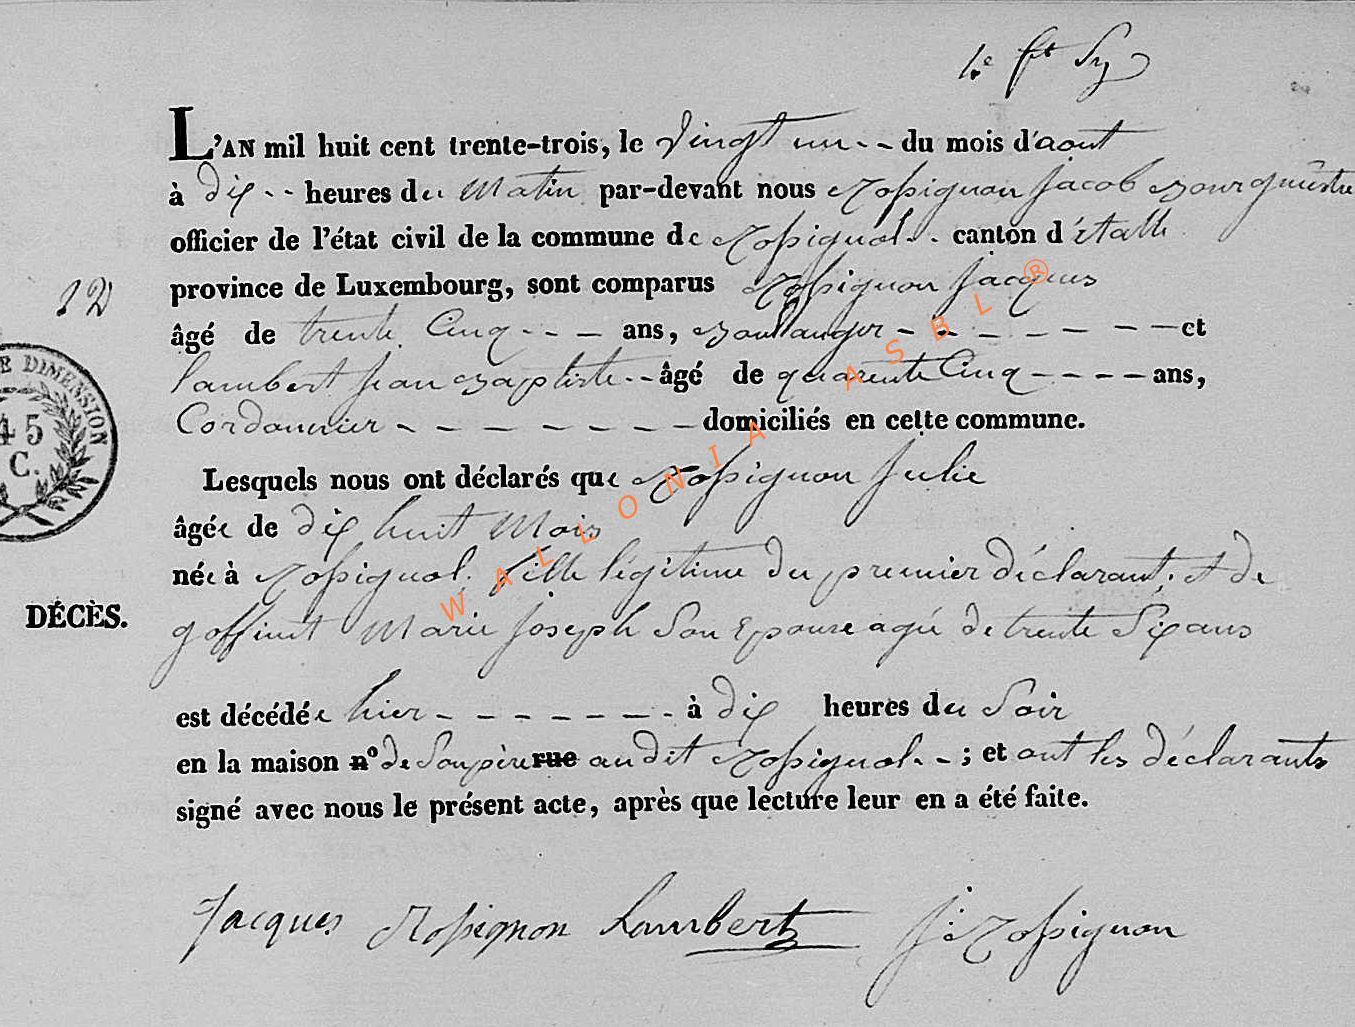 1.e ft Sy
L'AN mil huit cent trente-trois, le Vingt un -- du mois d'aout
à dix -- heures du Matin par-devant nous Rossignon Jacob Bourguèstre
officier de l'état civil de la commune de Rossignol -- canton d'étalle
province de Luxembourg, sont comparus Rossignon Jacques
12
âgé de trente Cinq --- ans, Boullanger ------- et
Lambert Jean Baptiste -- âgé de quarente Cinq ---- ans,
45
C.
E DIMENSION
Cordonnier -------- domiciliés en cette commune.
Lesquels nous ont déclarés que Rossignon Julie
âgée de dix huit Mois
née à Rossignol. fille légitime du premier déclarant, et de
DÉCÈS.
goffinet Marie Joseph Son Epouse agée de trente Six ans
est décédée hier ------- à dix heures du Soir
en la maison n° de Son père rue au dit Rossignol -- ; et ont les déclarants
signé avec nous le présent acte, après que lecture leur en a été faite.
Jacques Rossignon Lambert J: Rossignon
WALLONIA ASBL ®